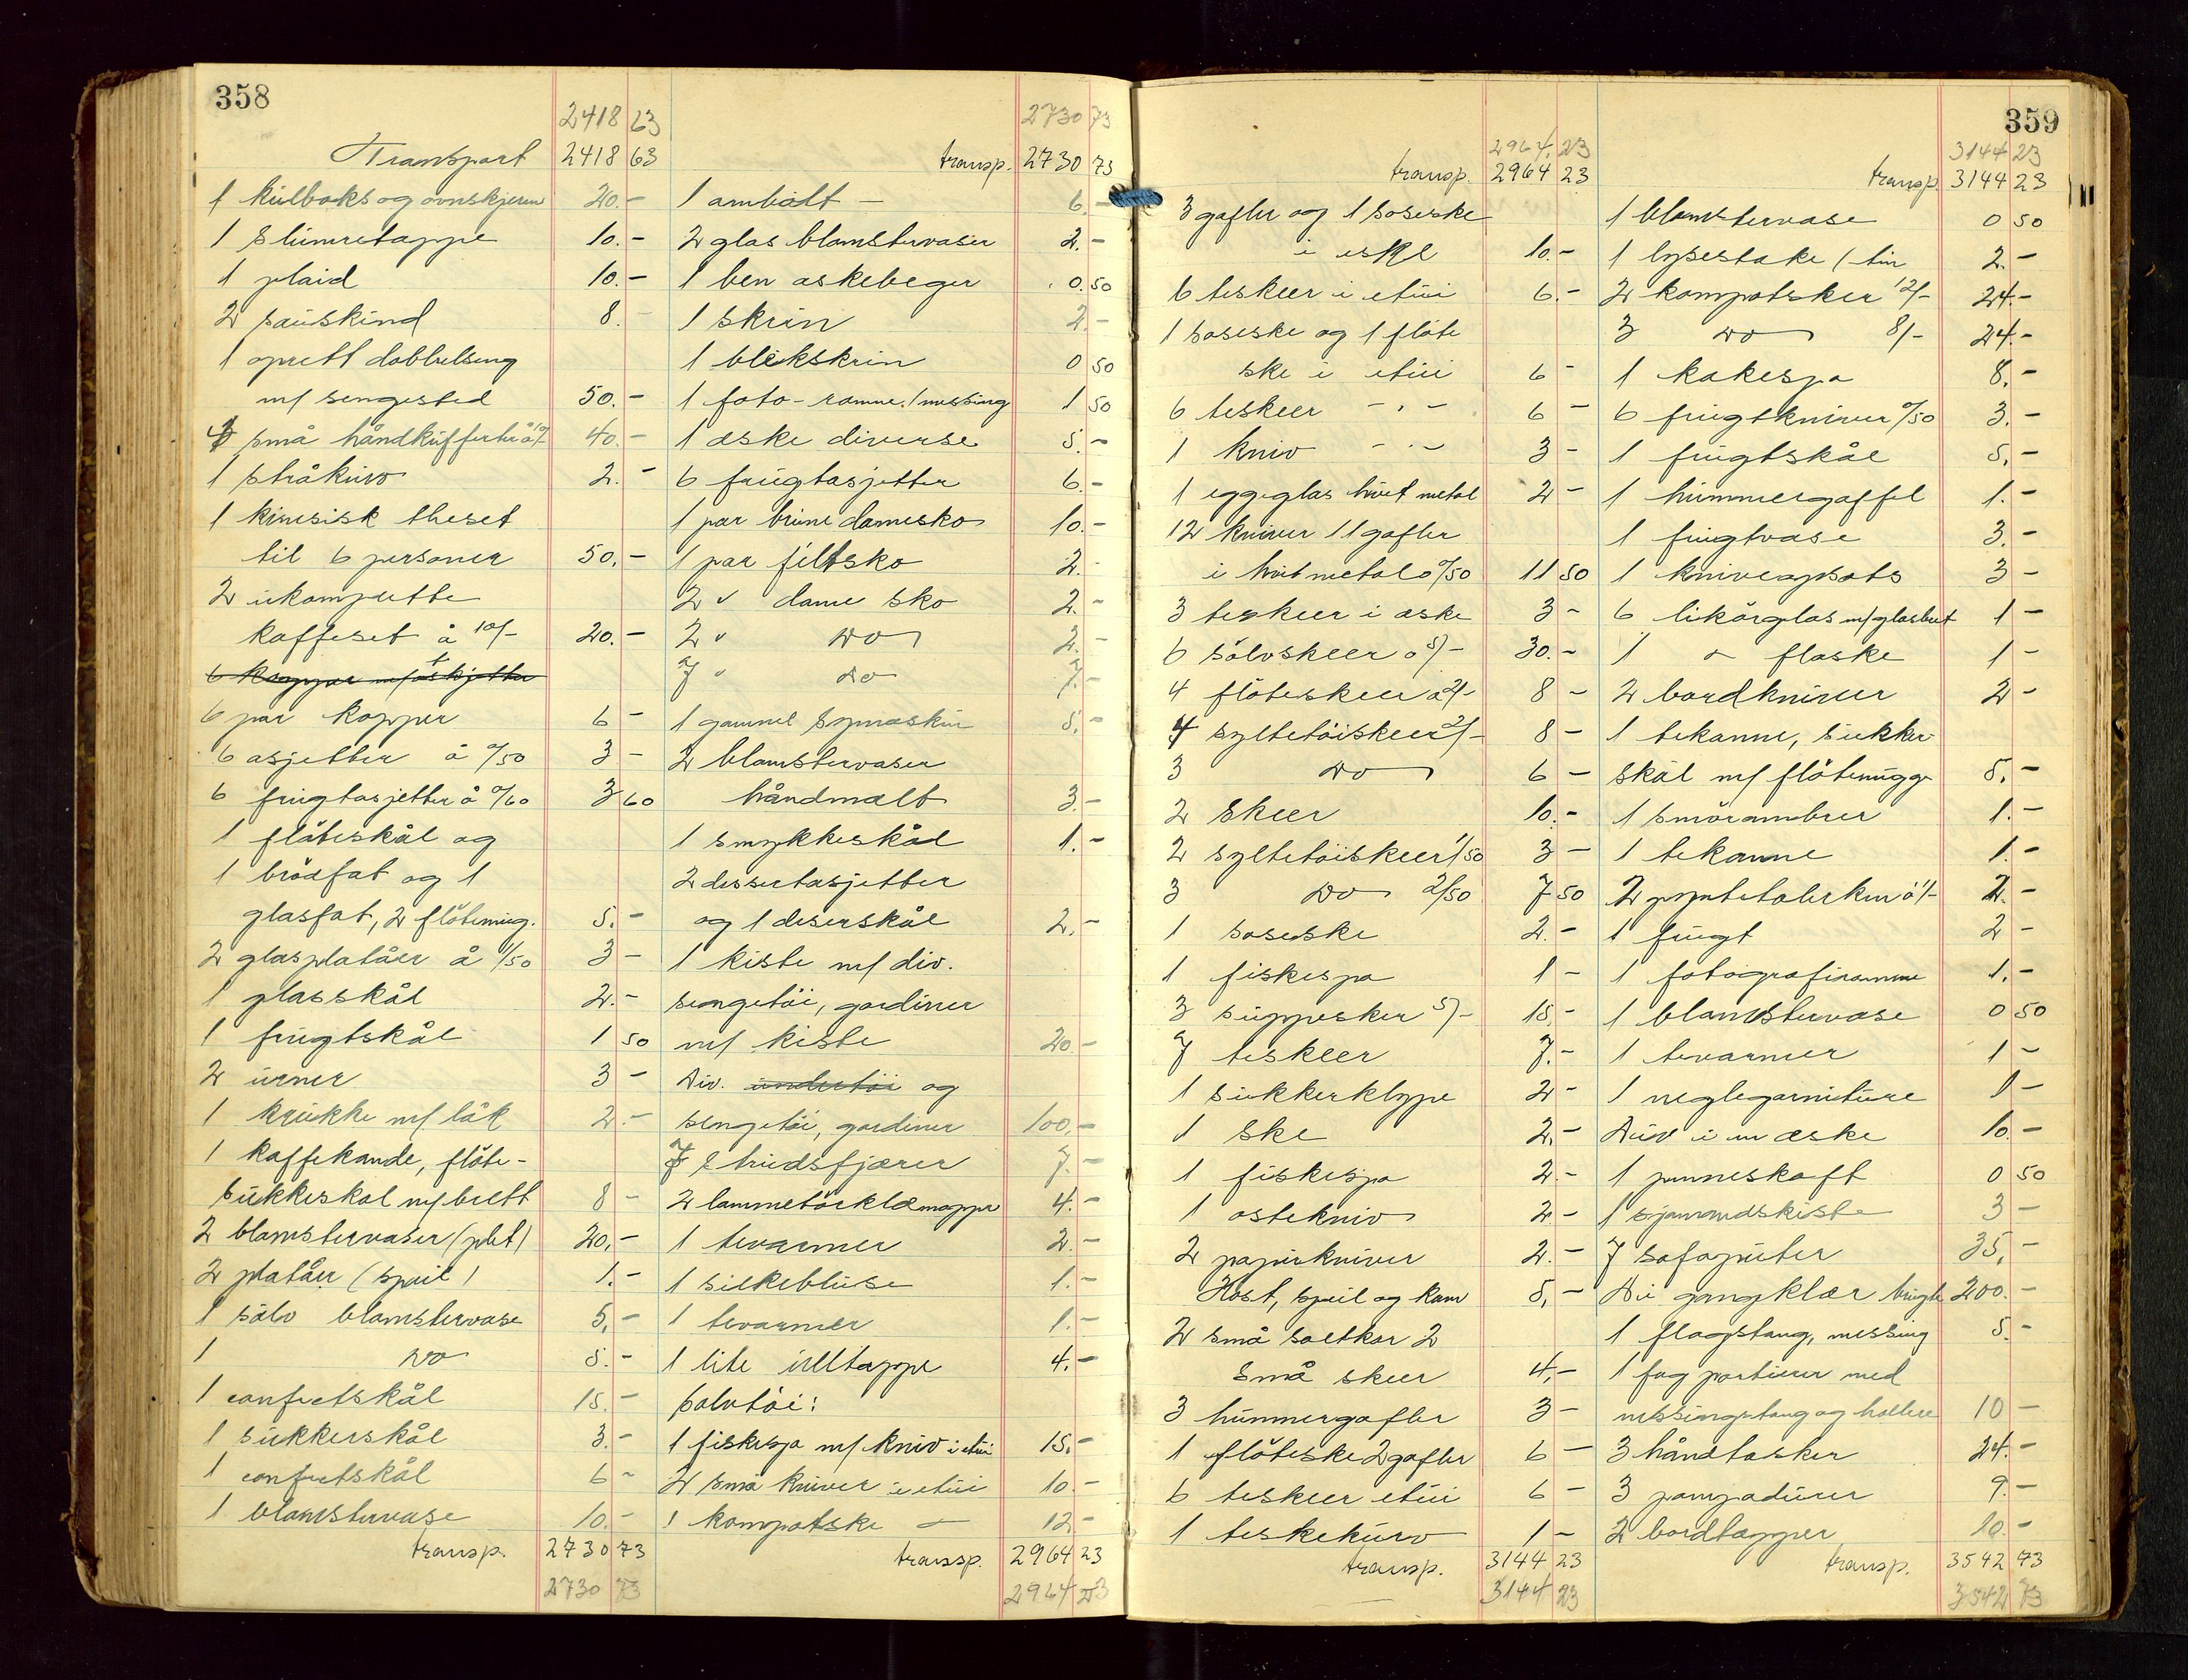 358
2418 63
Transport 2418 63
1 kulboks og ovnskjerm 20.-
1 slumretæppe 10.-
1 plaid 10.-
2 saueskind 8.-
1 oprett dobbelseng
m/ sengested 50.-
4 små håndkufferter à 10/- 40.-
1 stråkurv 2.-
1 kinesisk theset
til 6 personer 50.-
2 ukomplette
kaffeset à 10/- 20.-
6 kopper m/ askjetter
6 par kopper 6 -
6 asjetter à 0/50 3 -
6 frugtasjetter à 0/60 3 60
1 flöteskål og
1 brödfat og 1
glasfat, 2 flötemug. 5.-
2 glasplatåer à 1/50 3 -
1 glasskål 2.-
1 frugtskål 1 50
2 urner 3 -
1 krukke m/ låk 2.-
1 kaffekande, flöte-
sukkeskol m/ brett 8 -
2 blomstervaser (plet) 20.-
2 platåer (speil) 1.-
1 sölv blomstervase 5.-
1 do 5.-
1 confectskål 15.-
1 sukkerskål 3.-
1 confectskål 6 -
1 blomstervase 10.-
transp. 2730 73
2730 73
2730 73
transp. 2730 73
1 ambolt - 6.-
2 glas blomstervaser 2.-
1 ben askebeger 0.50
1 skrin 2.-
1 blikskrin 0 50
1 foto-ramme / messing 1 50
1 æske diverse 5.-
6 frugtasjetter 6.-
1 par brune damesko 10.-
1 par filtsko 2.-
2 " dame sko 2.-
2 " do 2.-
7 " do 7.-
1 gammel symaskin 5.-
2 blomstervaser
håndmalt 3.-
1 smykkeskål 1.-
2 dessertasjetter
og 1 deserskål 2.-
1 kiste m/ div.
sengetöi, gardiner
m/ kiste 20.-
Div. undertöi og
sengetöi, gardiner 100.-
7 strudsfjærer 7.-
2 lommetörklæmapper 4.-
1 tevarmer 2.-
1 silkebluse 1.-
1 tevarmer 1.-
1 lite ulltæppe 4.-
Sölvtöi:
1 fiskespa m/ kniv i etui 15.-
2 små kniver i etui 10.-
1 kompotske - 12.-
transp. 2964 23
2964 23
2964. 23
transp. 2964 23
3 gafler og 1 soseske
i eske 10.-
6 teskeer i etui 6.-
1 soseske og 1 flöte
ske i etui 6 -
6 teskeer - " - 6 -
1 kniv - " - 3 -
1 eggeglas hvit metal 2 -
12 kniver 11 gafler
i hvit metal à 0/50 11 50
3 teskeer i æske 3 -
6 sölvskeer à 5/- 30.-
4 flöteskeer à 2/- 8 -
4 syltetöiskeer 2/- 8 -
3 do 6 -
2 skeer 10.-
2 syltetöiskeer 1/50 3 -
3 do 2/50 7 50
1 soseske 2.-
1 fiskespa 1 -
3 suppesker 5/- 15.-
7 teskeer 7.-
1 sukkerklype 2 -
1 ske 2.-
1 fiskespa 2.-
1 ostekniv 2 -
2 papirkniver 2.-
Kost, speil og kam 5.-
2 små saltkar 2
små skeer 4.-
3 hummergafler 3 -
1 flöteske 2 gafler 6 -
6 teskeer etui 6 -
1 teskekurv 1 -
transp. 3144 23
3144 23
359
3144 23
transp 3144 23
1 blomstervase 0 50
1 lysestake / tin 2.-
2 kompotsker 12/- 24.-
3 do 8/- 24.-
1 kakespa 8.-
6 frugtkniver 0/50 3.-
1 frugtskål 5.-
1 hummergaffel 1.-
1 frugtvase 3.-
1 kniveopsats 3 -
6 likörglas m/ glasbret 1 -
1 " flaske 1 -
2 bordkniver 2 -
1 tekanne, sukker
skål m/ flötemugge 5.-
1 smörambrer 1.-
1 tekanne 1.-
2 pyntetalerken à 1/- 2.-
1 frugt 2 -
1 fotografiramme 1.-
1 blomstervase 0 50
1 tevarmer 1 -
1 neglegarniture 1 -
Div i en æske 10.-
1 penneskaft 0 50
1 sjømandskiste 3 -
7 sofaputer 35.-
Div gangklær brugte 200.-
1 flagstang, messing 5.-
1 fag portierer med
messingstang og holdere 10 -
3 håndtasker 24.-
3 pompadurer 9.-
2 bordtæpper 10.-
transp. 3542 73
3542 73